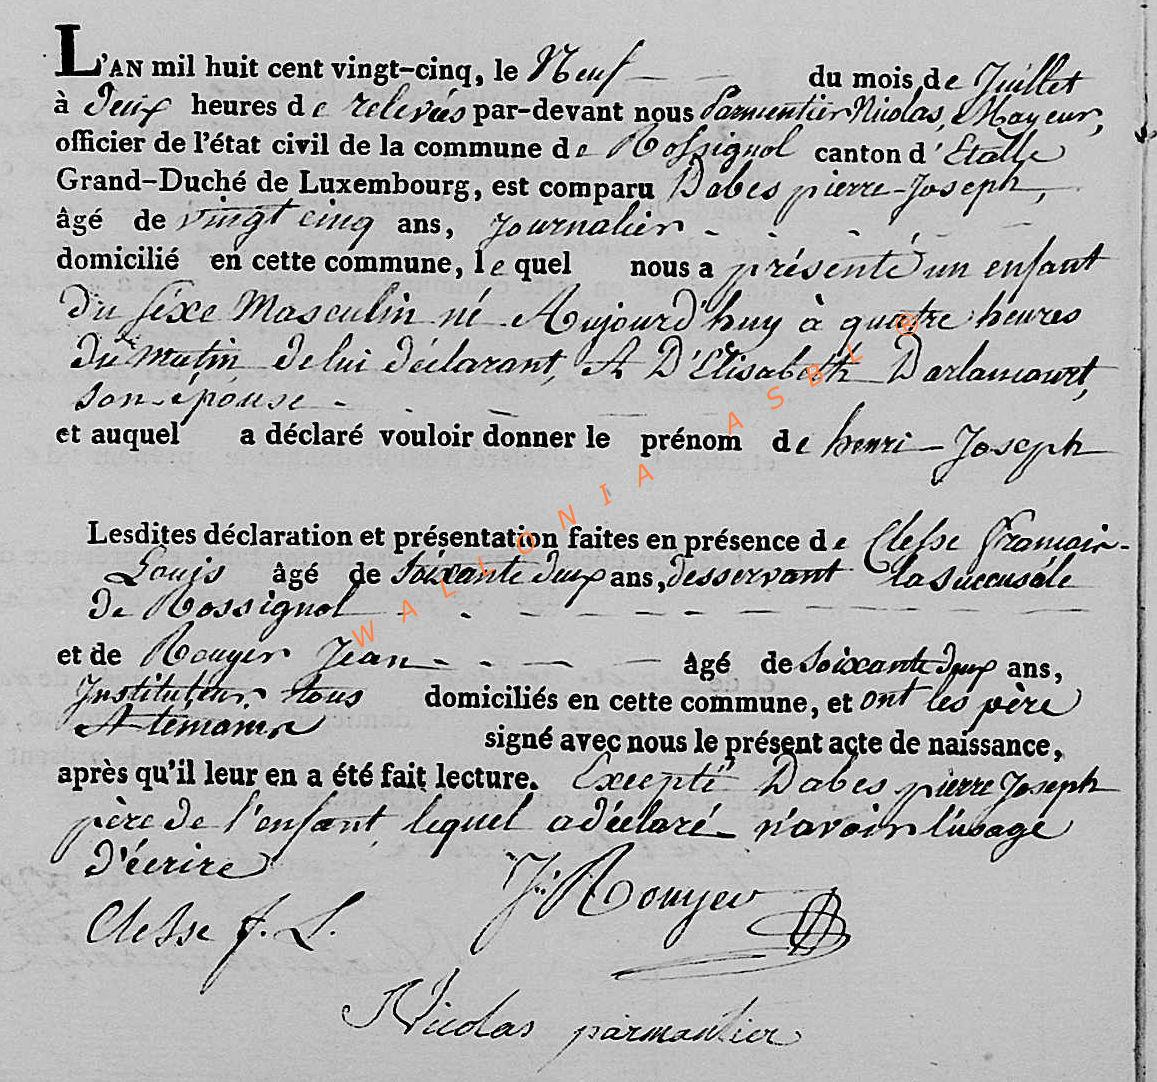 L'AN mil huit cent vingt-cinq, le Neuf du mois de Juillet
à deux heures de relevées par-devant nous Parmentier Nicolas, Mayeur,
officier de l'état civil de la commune de Rossignol canton d'Etalle
Grand-Duché de Luxembourg, est comparu Dabes pierre-Joseph,
âgé de vingt cinq ans, Journalier
domicilié en cette commune, lequel nous a présenté un enfant
du sexe Masculin né Aujourd'huy à quatre heures
du matin de lui déclarant, & D'Elisabeth Darlancourt,
son épouse
et auquel a déclaré vouloir donner le prénom de henri-Joseph
Lesdites déclaration et présentation faites en présence de Clesse François-
Louis âgé de soixante deux ans, desservant la succusale
de Rossignol
et de Rouyer Jean âgé de soixante deux ans,
Instituteur tous domiciliés en cette commune, et ont les père
& temoins signé avec nous le présent acte de naissance,
après qu'il leur en a été fait lecture. Excepté Dabes pierre Joseph
père de l'enfant lequel a déclaré n'avoir l'usage
d'écrire
J: Rouyer
Clesse f. L.
Nicolas parmentier
WALLONIA ASBL ®